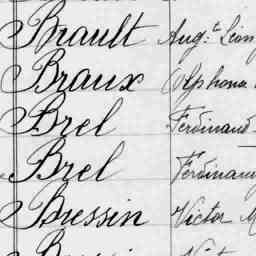 Brault Aug.te Léon
Braux Alphonse
Brel Ferdinand
Brel Ferdinand
Bressin Victor M